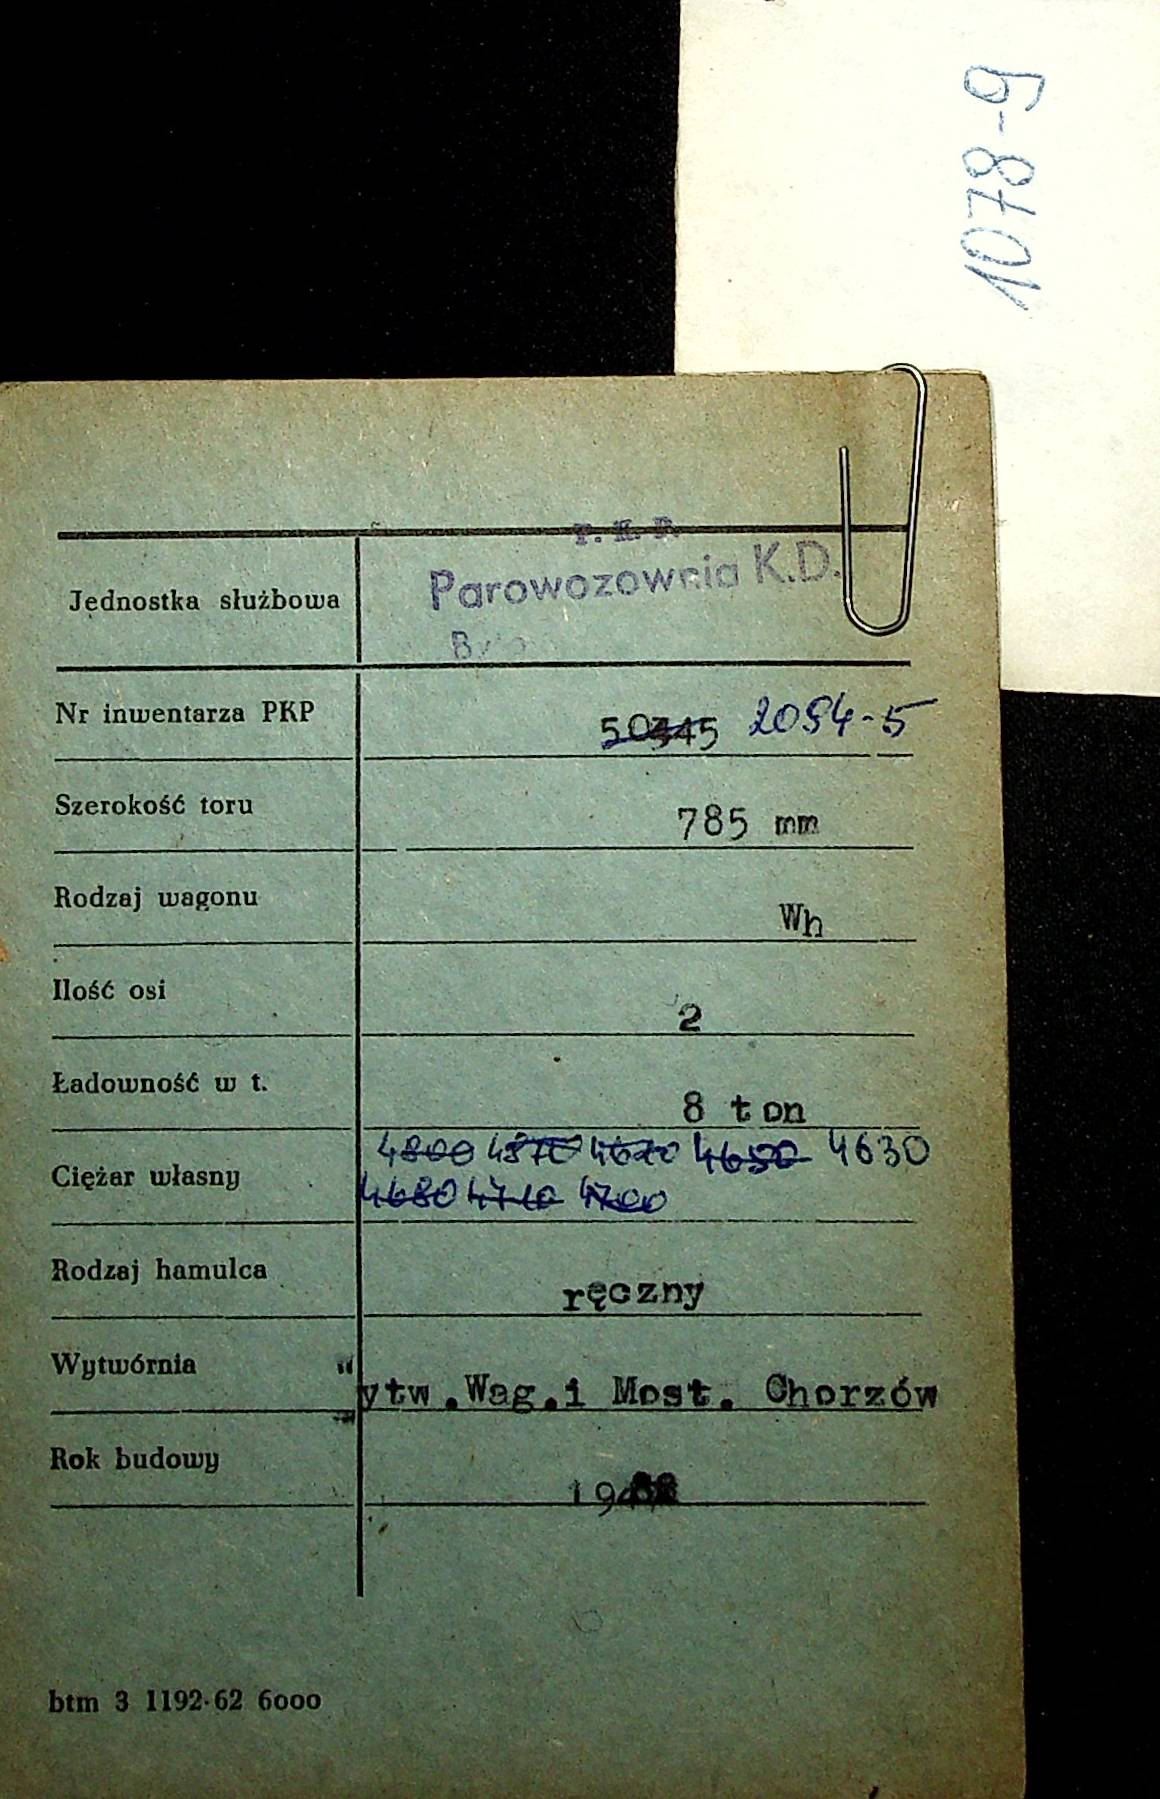 1078-9
P. K. P.
Jednostka służbowa Parowozownia K.D.
Nr inwentarza PKP 50345 2054-5
Szerokość toru 785 mm
Rodzaj wagonu Wh
Ilość osi 2
Ładowność w t. 8 ton
4800 4870 4670 4650 4630
Ciężar własny
4680 4710 4700
Rodzaj hamulca ręczny
Wytwórnia "ytw.Wag.i Most. Chorzów
Rok budowy
btm 3 1192·62 6000